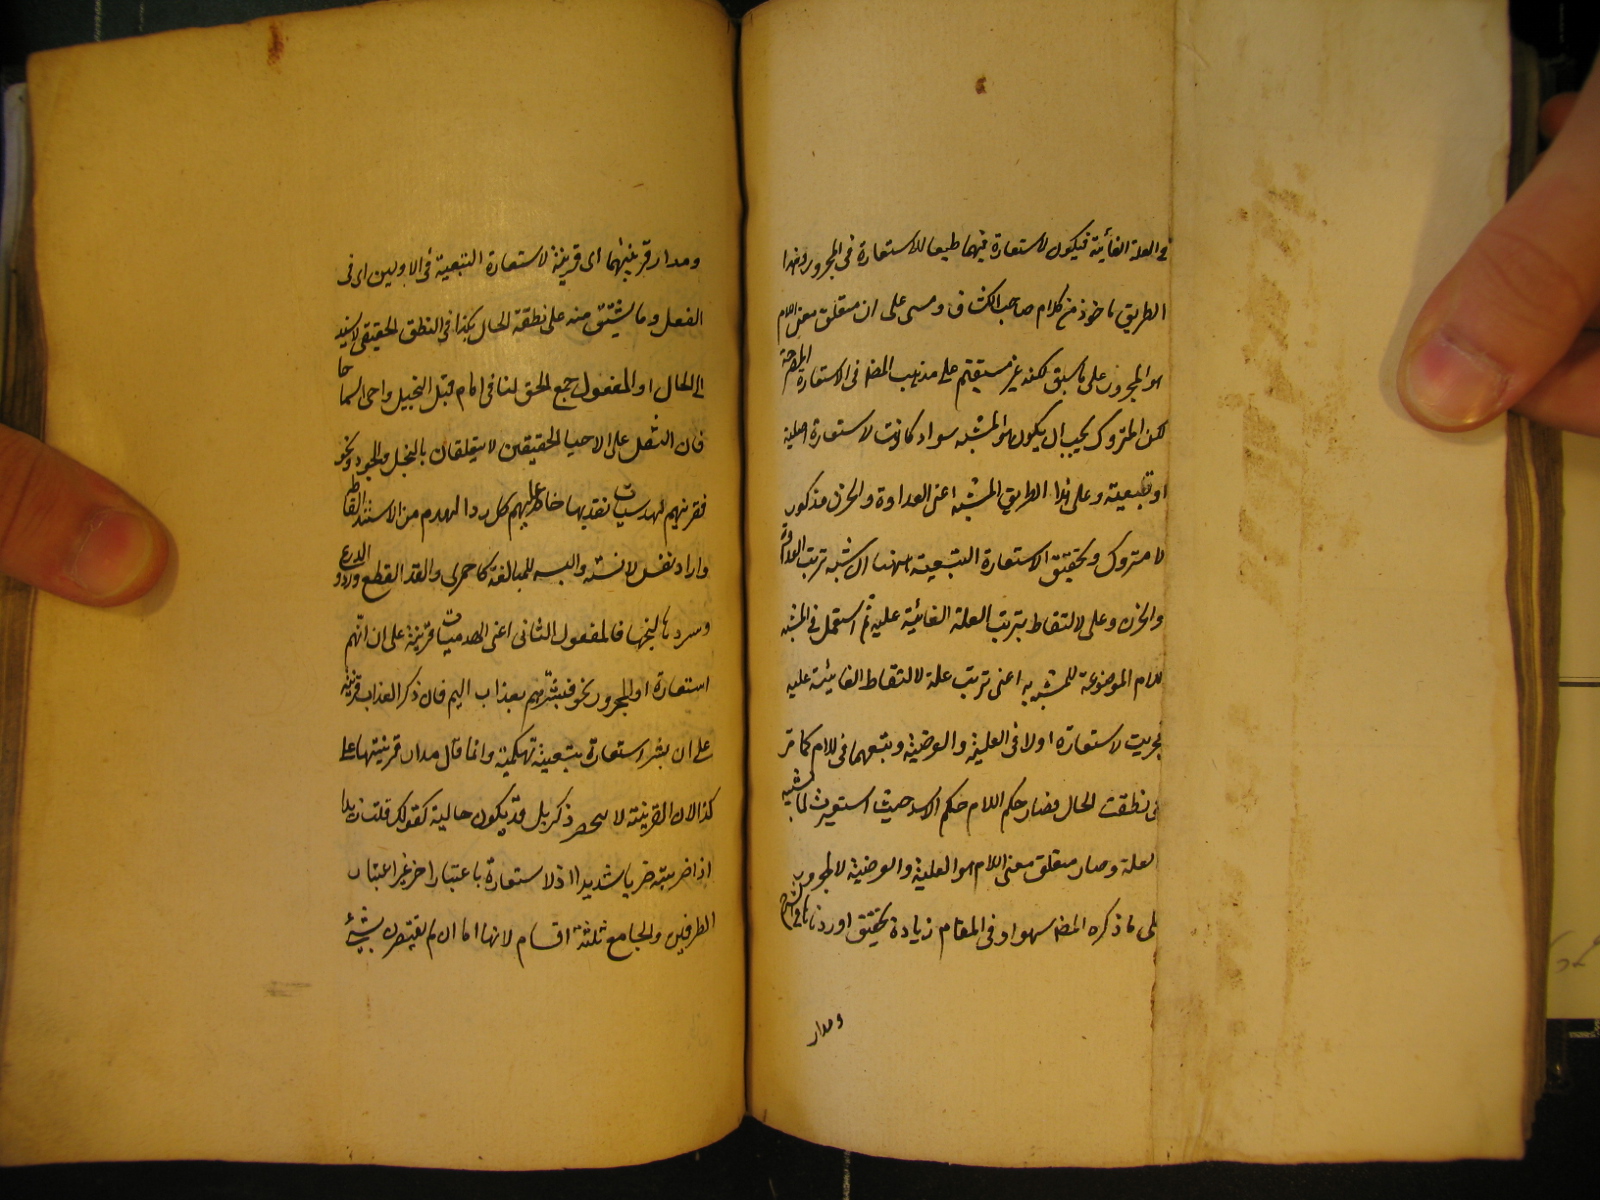 في العلة الغائية فيكون لاستعارة فيها طبعا للاستعارة في المجرور وهذا
الطريق ماخوذ من كلام صاحب الكشاف ومسى على ان متعلق معنى اللام
هو المجرور على ما سبق لكنه غير مستقيم على مذهب المصـ في الاستعارة المصرحة
لكن المتروك يجب ان يكون هو المشبه سواء كانت لاستعارة اصلية
او تبعية وعلى هذا الطريق المشبه اعنى العداوة والحزن مذكور
لا متروك وتحقيق الاستعارة التبعية ههنا انه شبه ترتب العداوة
والحزن وعلى لالتقاط بترتب العلة الغائية عليه ثم استعمل في المشبه
للام الموضوعة للمشبه به اعنى ترتب علة لالتقاط الغائية عليه
فجريت لاستعارة اولا في العلية والعرضية وبتبعهما في للام كما مر
في نطقت الحال فصار حكم اللام حكم الاسد حيث استعيرت لما شبه
لعلة وصار متعلق معنى اللام هو العلية والعرضية لا المجرور
على ما ذكره المصـ سهوا وفي المقام زيادة تحقيق اوردناها في الشرح
ومدار
ومدار قرينتهما اى قرينة لاستعارة التبعية في الاولين اى فى
الفعل وما يشتق منه على نطقت الحال بكذا فى النطق الحقيقى لا يسند
الى الحال او المفعول جمع الحق لنا في امام قتل البخيل واحى السماحا
فان القتل على الاحيا الحقيقين لا يتعلقان بالبخل والجود ونحو
فقرنهم لهدميات نقد بها خاط عليهم كل رد الهدم من الاسنة القاطع
واراد نفس لاسنة والبسه للمبالغة كاحمرى والقد القطع وزرد الدرع
وسردها ليجها فالمفعول الثانى اعنى الهدميات قرينة على ان انهم
استعارة او المجرور نحو فبشرهم بعذاب اليم فان ذكر العذاب قرينة
على ان بشر استعارة تبعية تهكمية وانما قال مدار قرينتها على
كذا لان القرينة لا ينحصر ذكر بل قد يكون حالية كقولك قلت زيدا
اذا ضربته ضربا شديدا اذ لاستعارة باعتبار اخر غير اعتبار
الطرفين والجامع ثلثة اقسام لانها اما ان لم يقترن بشئ